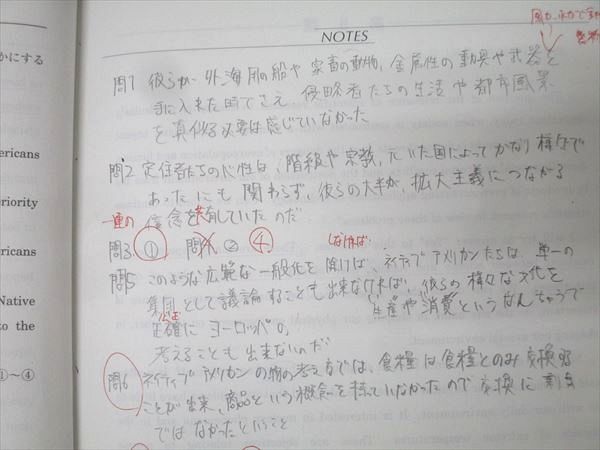 NOTES
問1 彼らが、外海用の船や家畜の動物、金属性の動具や武器を
手に入れた時でさえ、侵略者たちの生活や都市風景
を真似る必要は感じていなかった
問2 定住者たちの心性は、階級や宗教、元いた国によってかなり様々で
あったにも関わらず、彼らの大半が、拡大主義につながる
一連の信念を共有していたのだ
問3 ① 問4 ② ④ しなければ
問5 このような広範な一般化を除けば、ネイティブアメリカンたちは、単一の
集団として議論することも出来なければ、彼らの様々な文化を
正確に ヨーロッパの 生産や消費という
考えることも出来ないのだ
問6 ネイティブアメリカンの物の考え方では、食糧は食糧とのみ交換する
ことが出来、商品という概念を持っていなかったので交換に
ではなかったということ
かにする
ericans
eriority
ericans
Native
to the
①~④